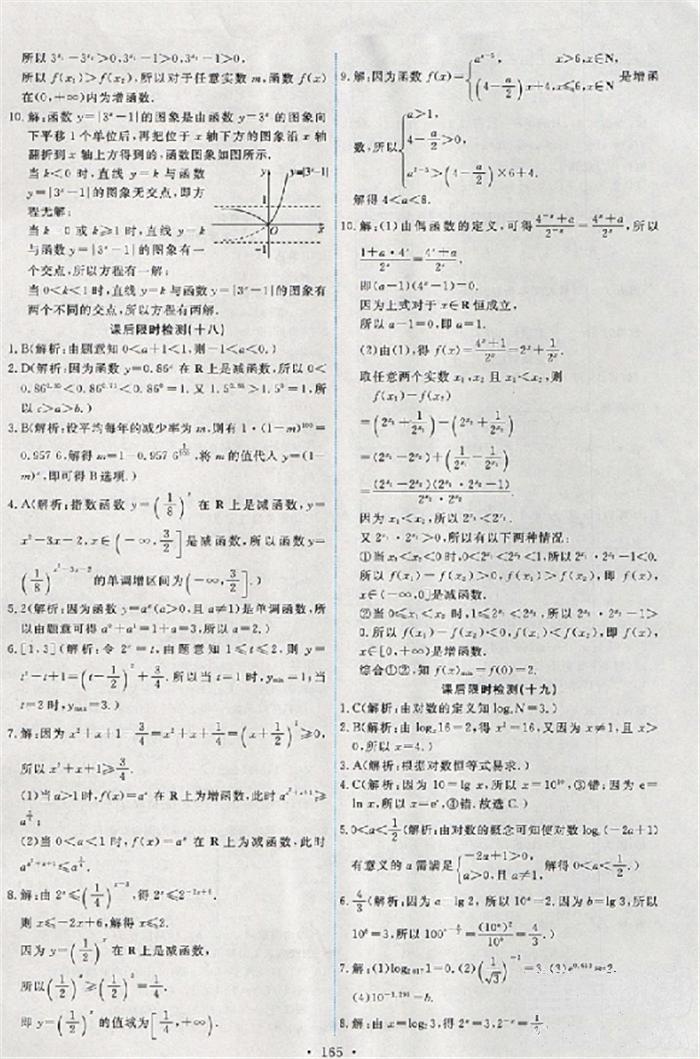 所以 3^x₁－3^x₂>0,3^x₁－1>0,3^x₂－1>0.
所以 f(x₁)>f(x₂),所以对于任意实数 m,函数 f(x)
在(0,+∞)内为增函数.
10.解:函数 y=|3^x－1|的图象是由函数 y=3^x 的图象向
下平移 1 个单位后,再把位于 x 轴下方的图象沿 x 轴
翻折到 x 轴上方得到的,函数图象如图所示.
当 k<0 时,直线 y=k 与函数
y=|3^x－1|的图象无交点,即方
程无解;
当 k=0 或 k≥1 时,直线 y=k
与函数 y=|3^x－1|的图象有一
个交点,所以方程有一解;
当 0<k<1 时,直线 y=k 与函数 y=|3^x－1|的图象有
两个不同的交点,所以方程有两解.
y y=|3^x-1|
1
O x
－1
课后限时检测(十八)
1.B(解析:由题意知 0<a+1<1,则－1<a<0.)
2.D(解析:因为函数 y=0.86^x 在 R 上是减函数,所以 0<
<0.86⁰=1.又 >1.5⁰=1,所
以 c>a>b.)
3.B(解析:设平均每年的减少率为 m,则有 1·(1－m)^100=
0.957 6,解得 m=1－0.957 6^(1/100),将 m 的值代入 y=(1－
m)^x,即可得 B 选项.)
4.A(解析:指数函数 y=(1/8)^x 在 R 上是减函数,y=
x²－3x－2,x∈(－∞,3/2]是减函数,所以函数 y=
(1/8)^(x²－3x－2)的单调增区间为(－∞,3/2].)
5.2(解析:因为函数 y=a^x(a>0,且 a≠1)是单调函数,所
以由题意可得 a⁰+a¹=1+a=3,所以 a=2.)
6.[1,3](解析:令 2^x=t,由题意知 1≤t≤2,则 y=
t²－t+1=(t－1/2)²+3/4.所以当 t=1 时,y_min=1;当
t=2 时,y_max=3.)
7.解:因为 x²+x+1－3/4=x²+x+1/4=(x+1/2)²≥0,
所以 x²+x+1≥3/4.
(1)当 a>1 时,f(x)=a^x 在 R 上为增函数,此时 a^(x²+x+1)≥
a^(3/4);
(2)当 0<a<1 时,f(x)=a^x 在 R 上为减函数,此时
a^(x²+x+1)≤a^(3/4).
8.解:由 2^x≤(1/4)^(x－3),得 2^x≤2^(－2x+6).
则 x≤－2x+6,解得 x≤2.
因为 y=(1/2)^x 在 R 上是减函数,
所以(1/2)^x≥(1/2)²=1/4.
即 y=(1/2)^x 的值域为[1/4,+∞).
9.解:因为函数 f(x)={a^(x－5), x>6,x∈N,
(4－a/2)x+4,x≤6,x∈N 是增函
数,所以{a>1,
4－a/2>0,
a^(7－5)>(4－a/2)×6+4.
解得 4<a<8.
10.解:(1)由偶函数的定义,可得(4^(－x)+a)/2^(－x)=(4^x+a)/2^x,所以
(1+a·4^x)/2^x=(4^x+a)/2^x.
即(a－1)(4^x－1)=0.
因为上式对于 x∈R 恒成立,
所以 a－1=0,即 a=1.
(2)由(1),得 f(x)=(4^x+1)/2^x=2^x+1/2^x.
取任意两个实数 x₁,x₂ 且 x₁<x₂,则
f(x₁)－f(x₂)
=(2^x₁+1/2^x₁)－(2^x₂+1/2^x₂)
=(2^x₁－2^x₂)+(1/2^x₁－1/2^x₂)
=(2^x₁－2^x₂)(2^x₁·2^x₂－1)/(2^x₁·2^x₂)
因为 x₁<x₂,所以 2^x₁<2^x₂.
又 2^x₁·2^x₂>0,所以有以下两种情况:
①当 x₁<x₂<0 时,0<2^x₁<2^x₂<1,所以 2^x₁·2^x₂－1<0.
所以 f(x₁)－f(x₂)>0,f(x₁)>f(x₂),即 f(x),
x∈(－∞,0]是减函数.
②当 0≤x₁<x₂ 时,1≤2^x₁<2^x₂,所以 2^x₁·2^x₂－1>
0.所以 f(x₁)－f(x₂)<0,f(x₁)<f(x₂),即 f(x),
x∈[0,+∞)是增函数.
综合①②,知 f(x)_min=f(0)=2.
课后限时检测(十九)
1.C(解析:由对数的定义知 log_x N=3.)
2.B(解析:由 log_x 16=2,得 x²=16,又因为 x≠1,且 x>
0,所以 x=4.)
3.A(解析:根据对数恒等式易求.)
4.C(解析:因为 10=lg x,所以 x=10^10,③错;因为 e=
ln x,所以 x=e^e,④错.故选 C.)
5.0<a<1/2(解析:由对数的概念可知使对数 log_a(－2a+1)
有意义的 a 需满足{－2a+1>0,
a>0,且 a≠1, 解得 0<a<1/2.)
6.4/3(解析:因为 a=lg 2,所以 10^a=2.因为 b=lg 3,所以
10^b=3,所以 100^(a－b/2)=(10^a)²/10^b=4/3.)
7.解:(1)log₂₀₁₇1=0.(2)(1/√3)^(－2)=3.
(4)10^(－1.299)=b.
8.解:由 x=log₂3,得 2^x=3,2^(－x)=1/3.
· 165 ·